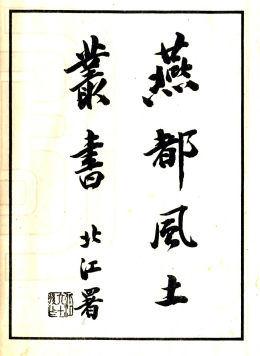 燕都風土
叢書
北江署